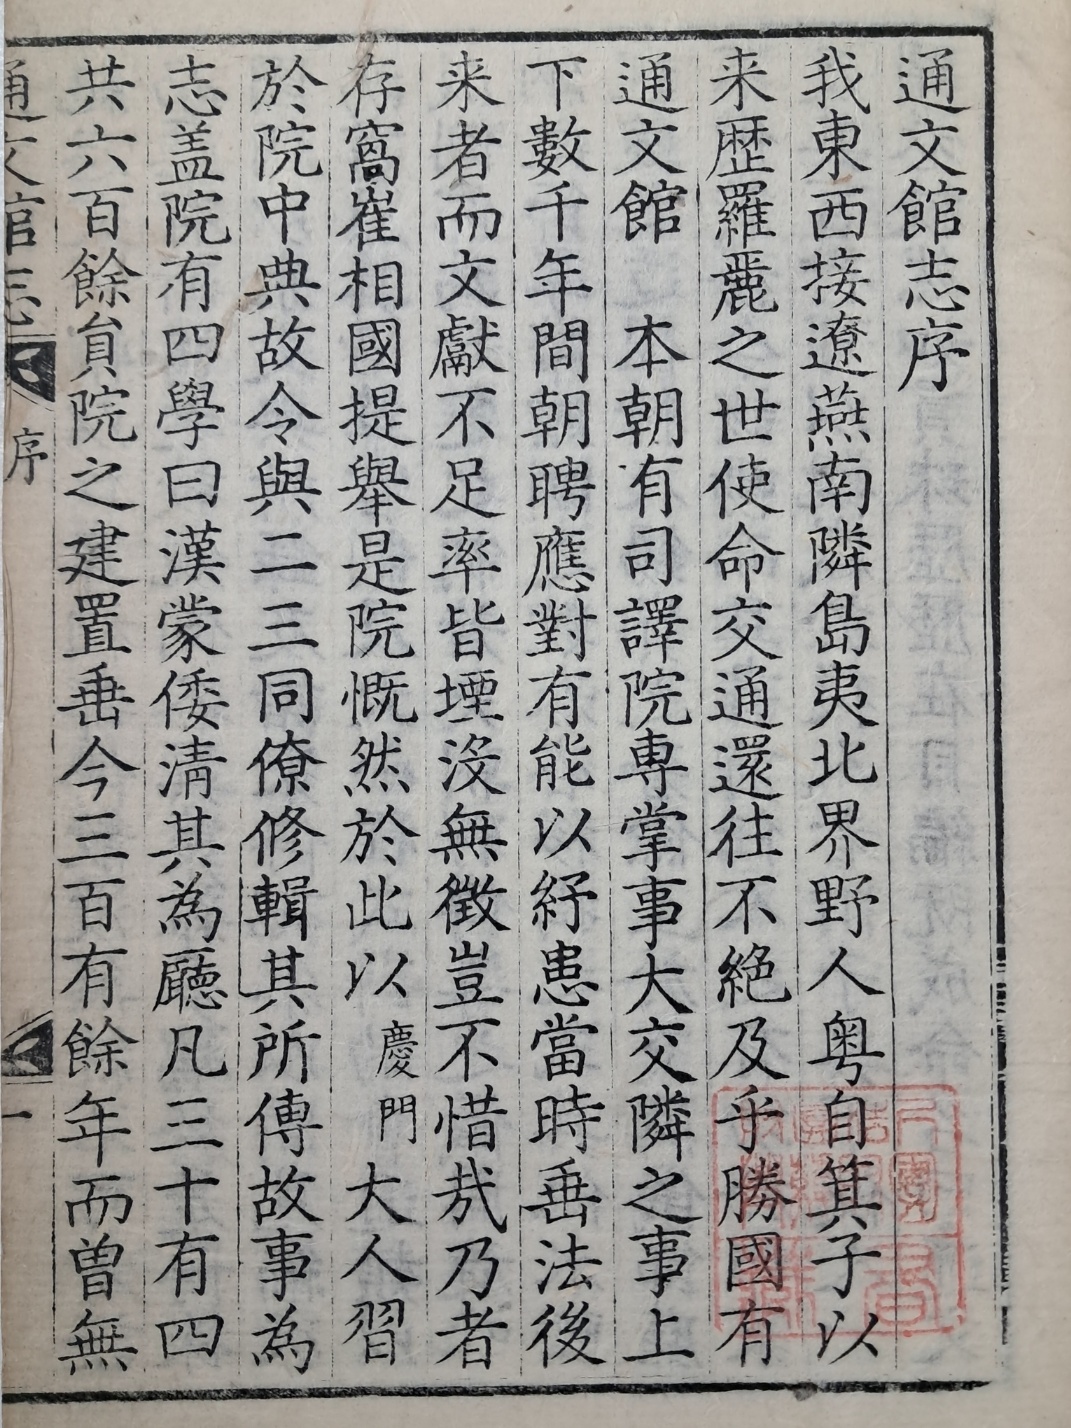 通文館志序
我東西接遼燕南隣島夷北界野人粤自箕子以
来歷羅麗之世使命交通還往不絶及乎勝國有
通文館　本朝有司譯院專掌事大交隣之事上
下數千年間朝聘應對有能以紓患當時垂法後
来者而文獻不足率皆堙沒無徵豈不惜㦲乃者
存窩崔相國提舉是院慨然於此以慶門大人習
於院中典故令與二三同僚修輯其所傳故事為
志盖院有四學曰漢蒙倭淸其為廳凡三十有四
共六百餘貟院之建置垂今三百有餘年而曾無
通文館志　序　一